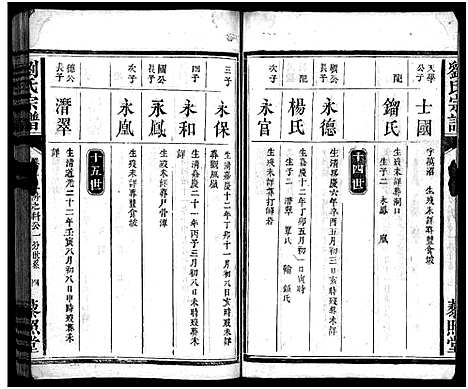 劉氏宗譜
藜照堂
天學公子
士國
字萬沼 生歿未詳葬豐食坡
妣
鎦氏
生歿未詳葬洞口
生子二 永 鳳 凰
十四世
國公長子
永德
生清嘉慶
妣
楊氏
生嘉慶十二年丁卯
生子二 潛 翠
次子
永官
生歿未詳葬打師岩
三子
永保
生清嘉慶十二年丁卯十一月初八日未時歿未詳
葬觀風嶺
四子
永和
生清嘉慶二十一年丙子三月初八日未時歿未詳
國公長子
永鳳
生歿未詳葬尸骨潭
次子
永凰
生歿未詳葬豐食坡
十五世
德公長子
潛翠
生清道光二十二年壬寅六月初八日申時歿葬未
詳
劉氏宗譜
藜照堂